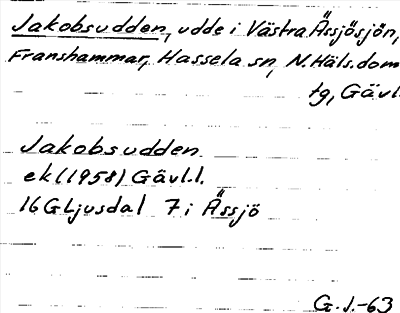 Jakobsudden, udde i Västra Ässjösjön,
Franshammar, Hassela sn, N. Häls. dom
tg, Gävl.
Jakobsudden
ek (1958) Gävl.l.
16GLjusdal 7 i Ässjö
G.J.-63